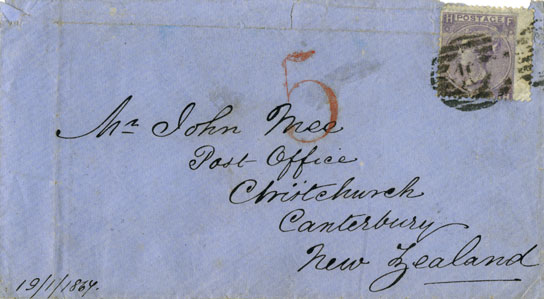 POSTAGE
5
Mr John Mee
Post Office
Christchurch
Canterbury
New Zealand
19/1/1864.